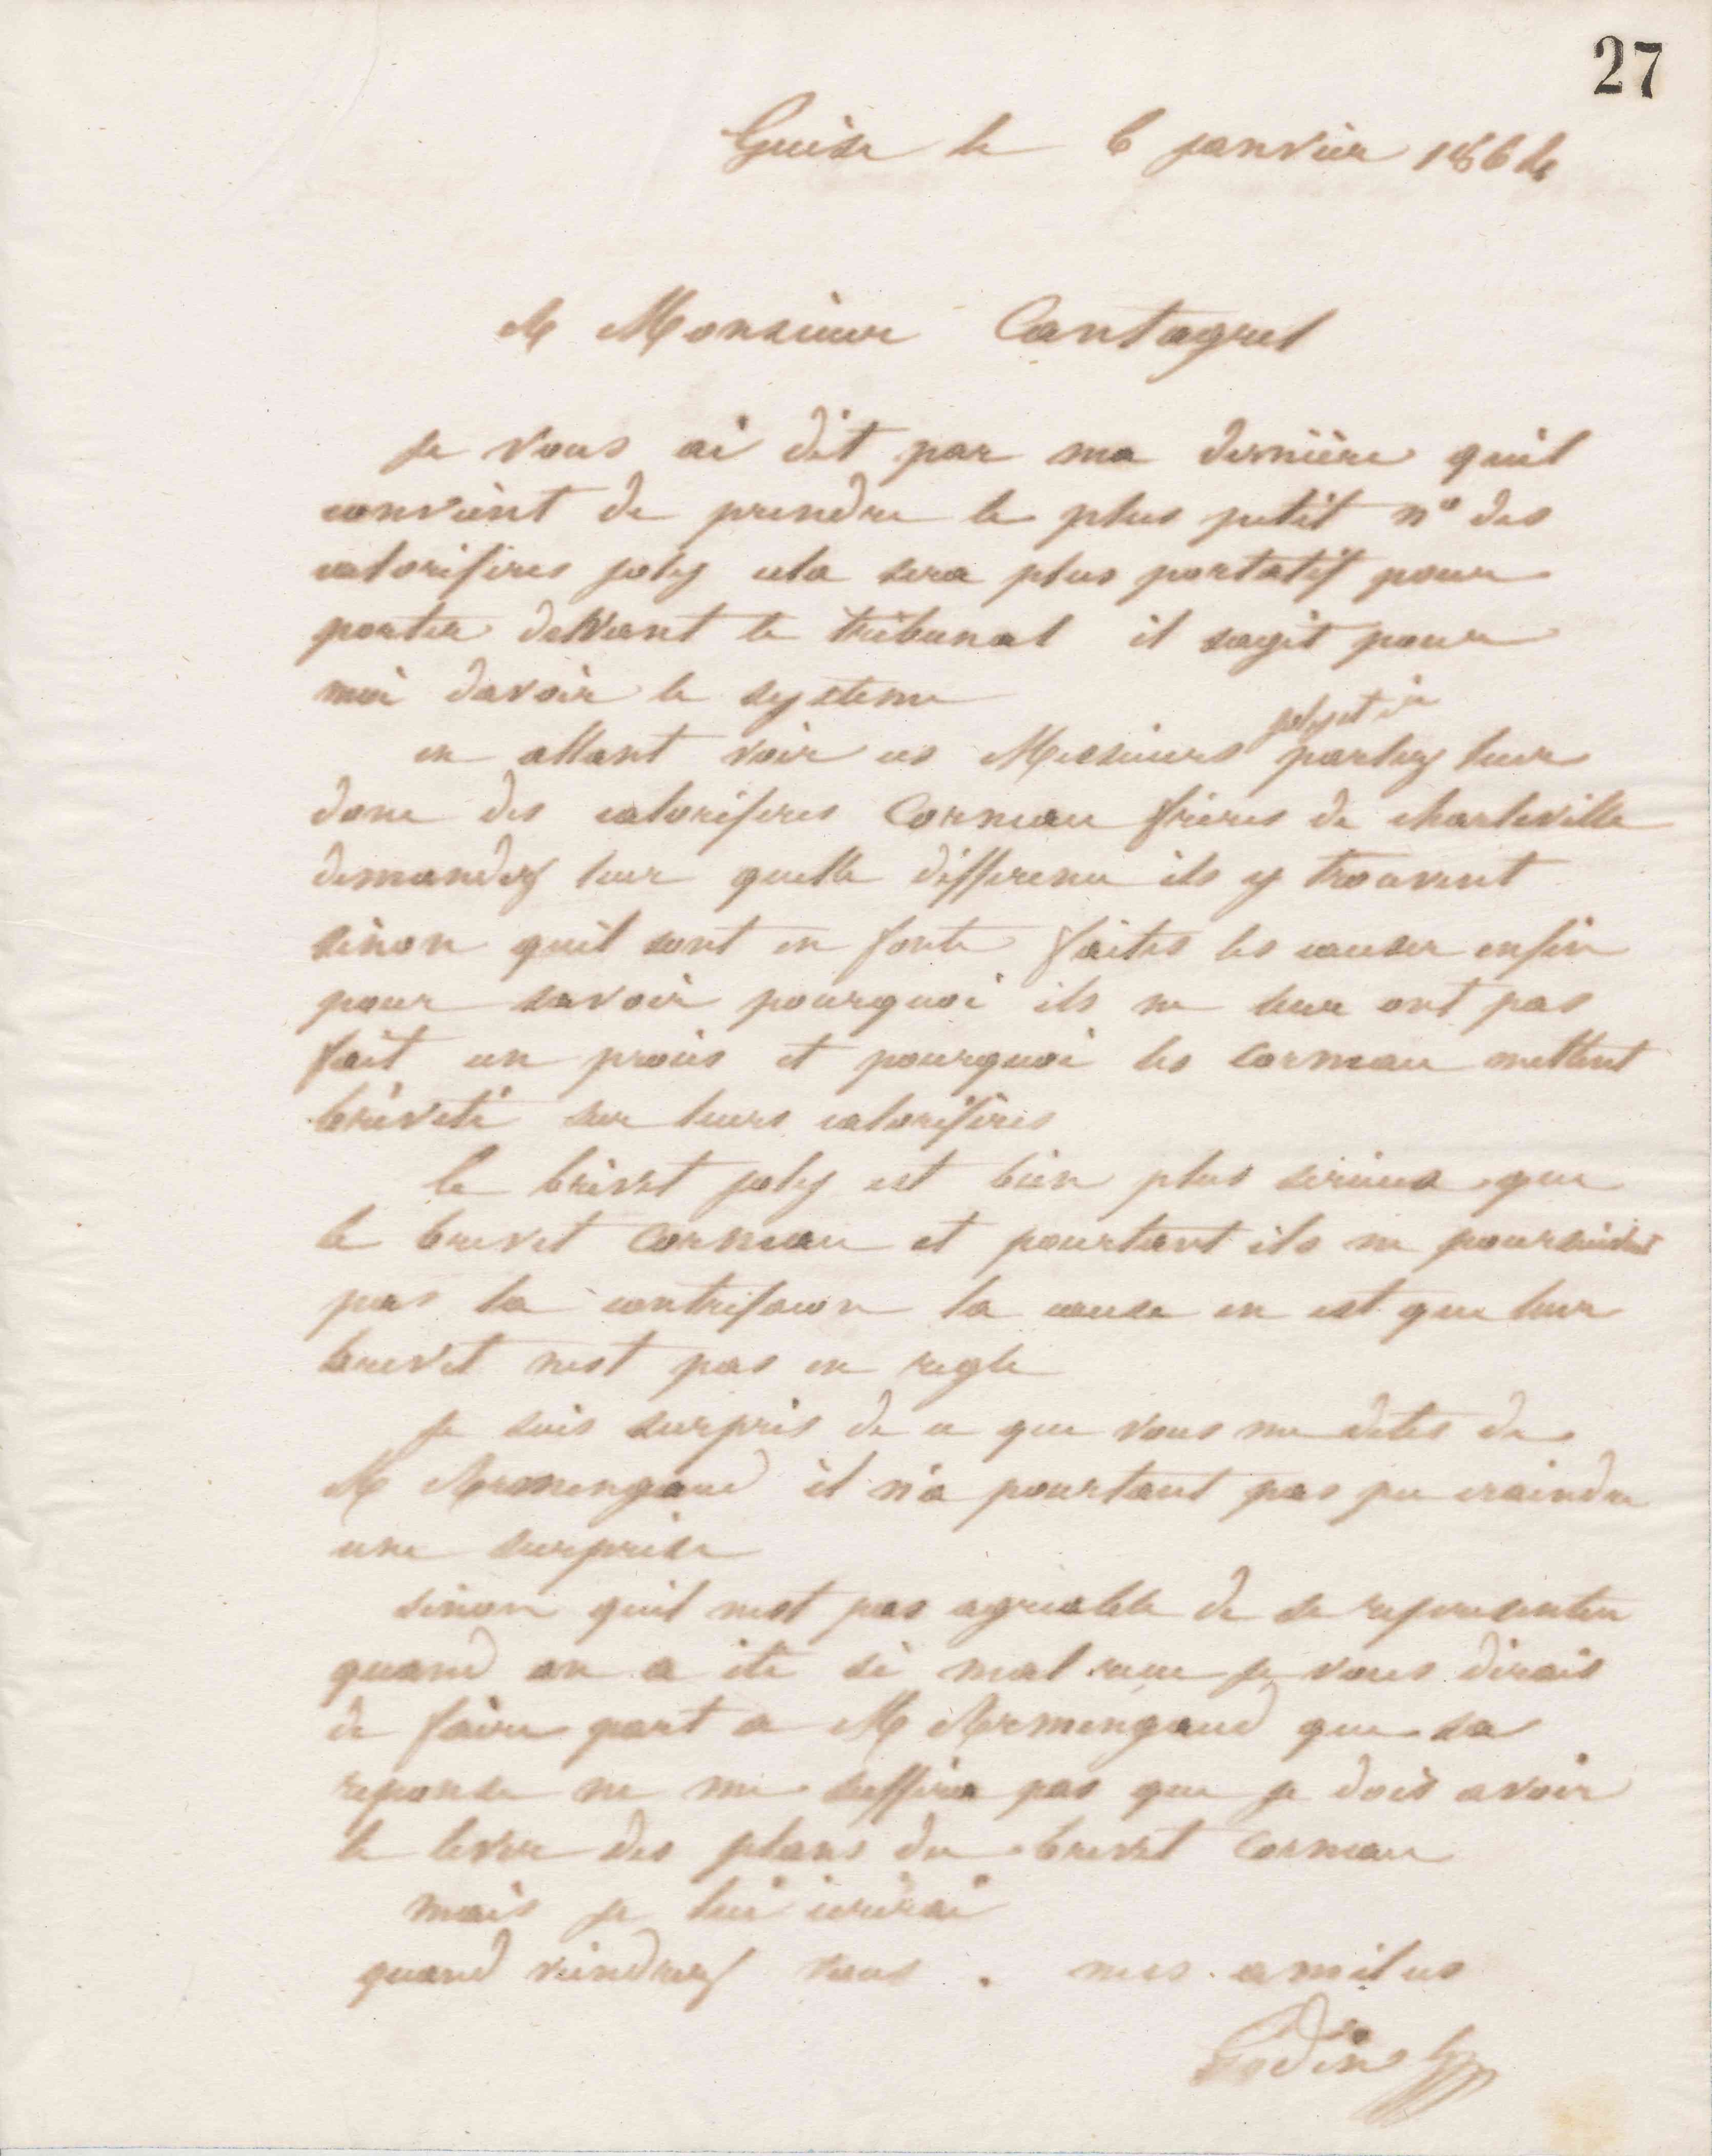 27
Guise le 6 janvier 1864
M Monsieur Cantagrel
je vous ai dit par ma dernière quil
convient de prendre le plus petit n° des
calorifères joly cela sera plus portatif pour
porter devant le tribunal il sagit pour
moi davoir le systeme
joly et cie
en allant voir ces Messieurs parlez leur
donc des caloriferes Corneau frères de charleville
demandez leur quelle difference ils y trouvent
sinon quil sont en fonte faites les causer enfin
pour savoir pourquoi ils ne leur ont pas
fait un procès et pourquoi les corneau mettent
brèveté sur leurs calorifères
le brèvet joly est bien plus serieux que
le brevet Corneau et pourtant ils ne poursuivent
pas la contrefacon la cause en est que leur
brevet nest pas en regle
je suis surpris de ce que vous me dites de
M Armengaud il n'a pourtant pas pu craindre
une surprise
sinon quil nest pas agréable de se representer
quand on a été si mal recu je vous dirais
de faire part a M Armengaud que sa
reponse ne me suffira pas que je dois avoir
le livre des plans du brevet corneau
mais je lui écrirai
quand viendrez vous . mes amitiés
Godin